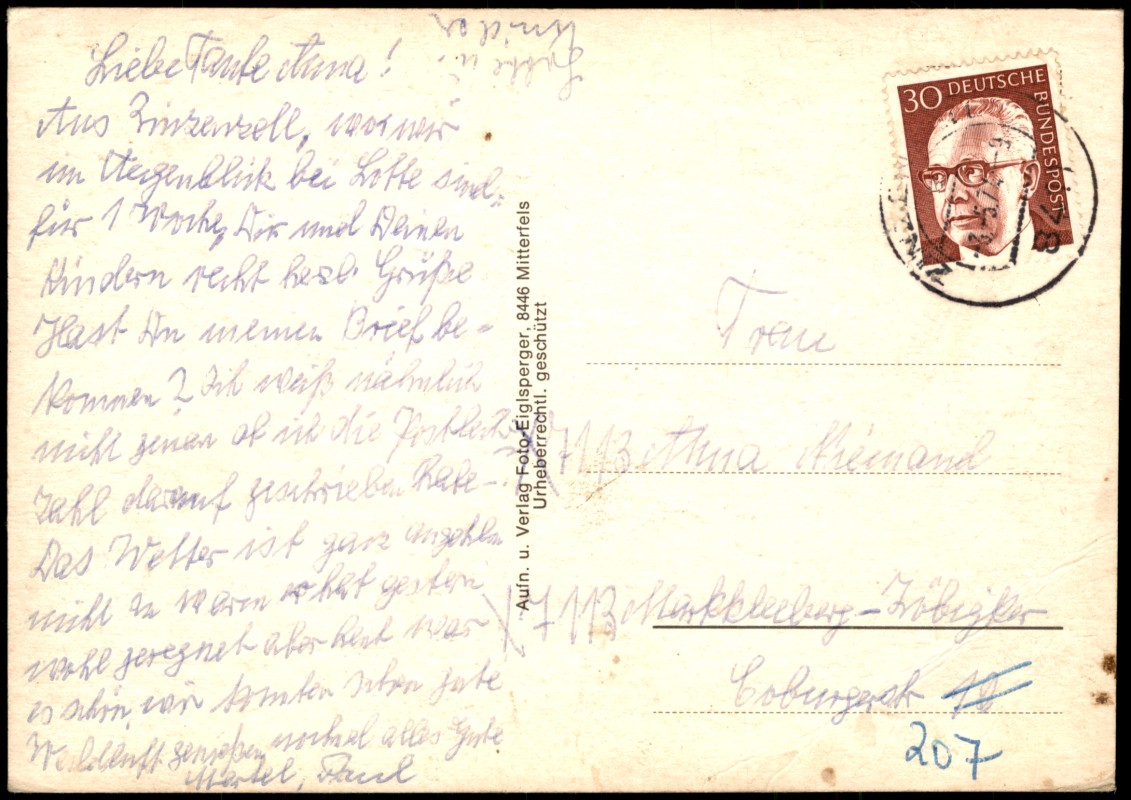 Liebe Tante Anna!
Aus Zinzenzell, wo wir
im Augenblick bei Lotte sind,
für 1 Woche, Dir und Deinen
Kindern recht herzl. Grüße
Hast Du meinen Brief be-
kommen? Ich weiß nähmlich
nicht genau ob ich die Postleit
Zahl darauf geschrieben habe-
Das Wetter ist ganz angehbm
nicht zu warm er hat gestern
wohl geregnet aber heut war
es schön, wir konnten schon gute
Waldluft genießen nochmal alles Gute
Martel, Paul
Lotte u.
Kinder
30 DEUTSCHE BUNDESPOST
78
Aufn. u. Verlag Foto-Eiglsperger, 8446 Mitterfels
Urheberrechtl. geschützt
Frau
7113 Anna Niemand
7113 Markkleeberg-Zöbigker
Coburgerstr
207